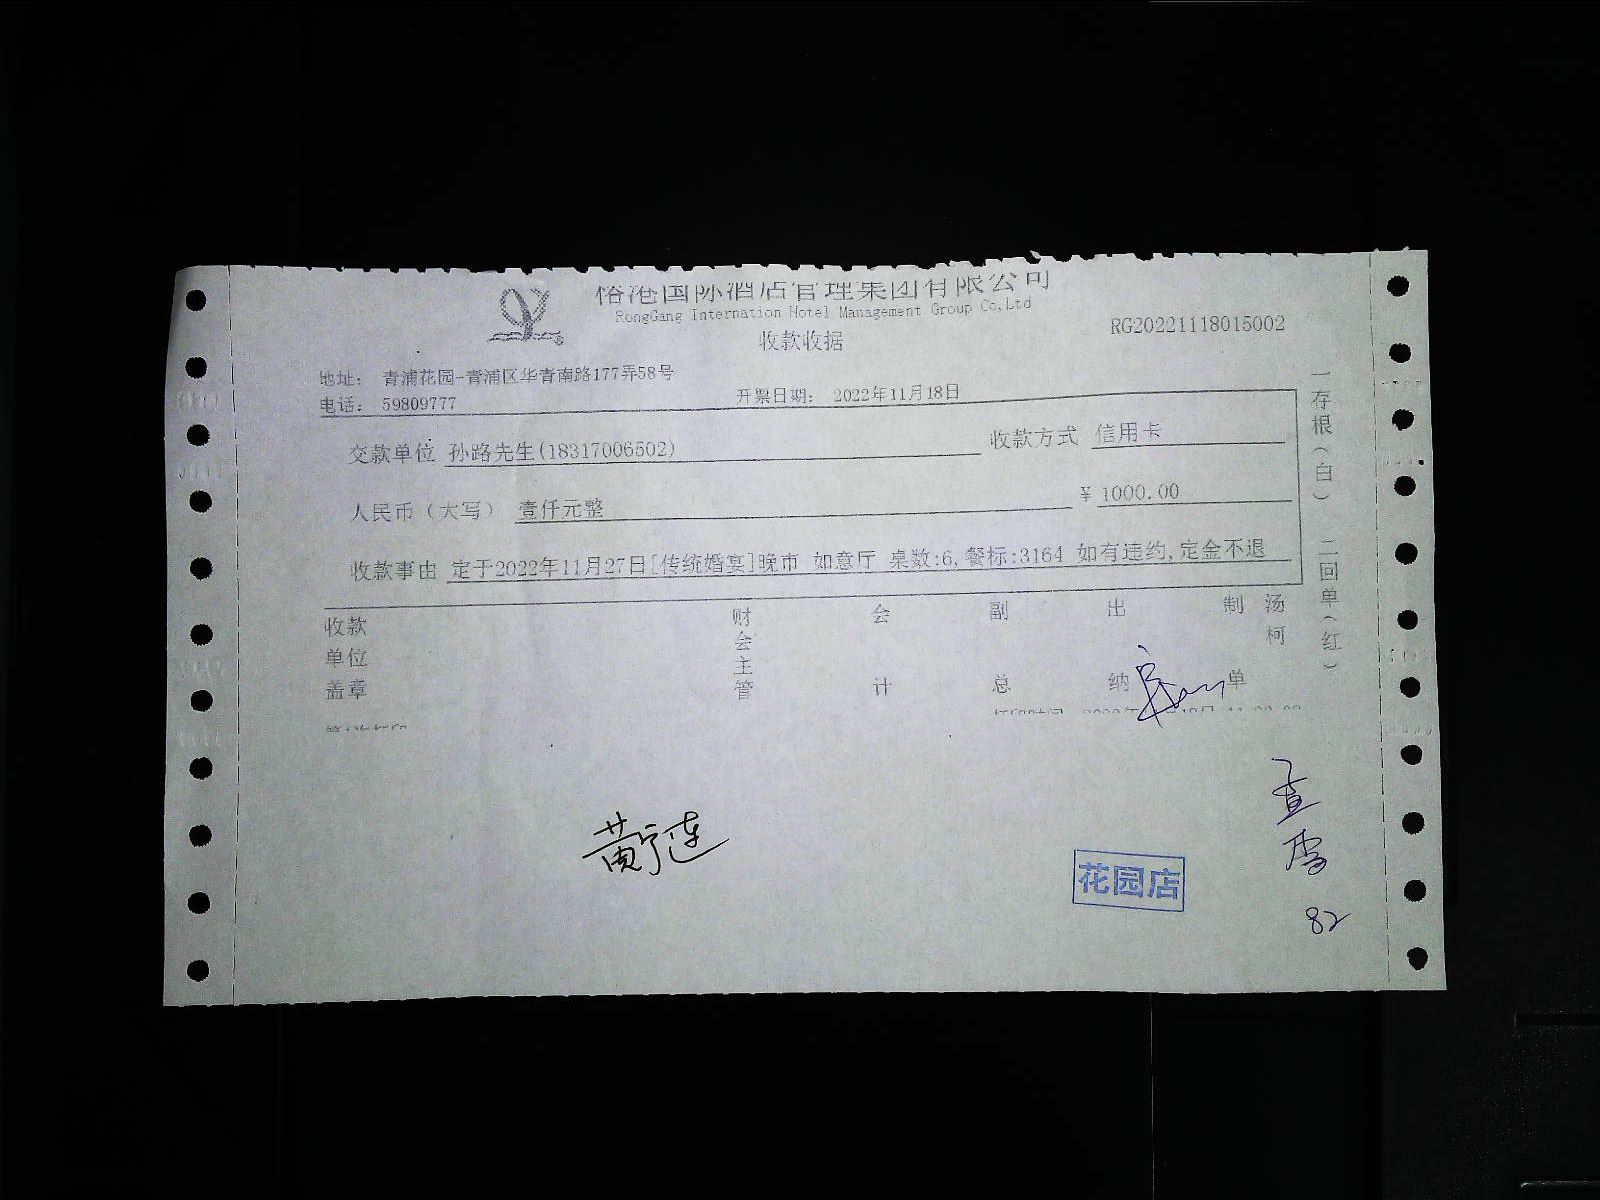 裕港国际酒店管理集团有限公司
RongGang Internation Hotel Management Group Co,Ltd
收款收据
RG20221118015002
地址： 青浦花园-青浦区华青南路177弄58号
电话： 59809777
开票日期： 2022年11月18日
交款单位 孙路先生(18317006502)
收款方式 信用卡
人民币（大写） 壹仟元整
¥ 1000.00
收款事由 定于2022年11月27日[传统婚宴]晚市 如意厅 桌数:6,餐标:3164 如有违约,定金不退
一存根（白） 二回单（红）
收款单位盖章
财会主管
会计
副总
出纳
制单
汤柯
黄宁莲
花园店
82